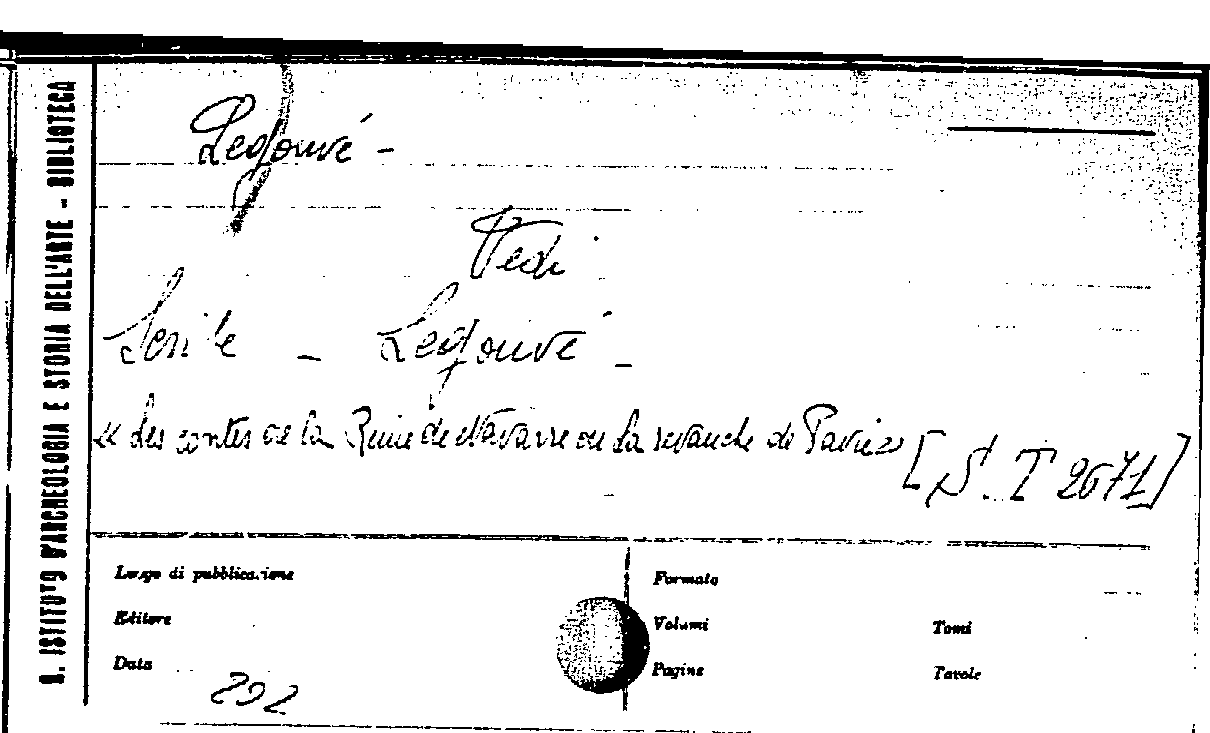 R. ISTITUTO D'ARCHEOLOGIA E STORIA DELL'ARTE - BIBLIOTECA
Legouvé -
Vedi
Scribe - Legouvé -
« Les contes de la Reine de Navarre ou la revanche de Pavie » [S. T 2671]
Luogo di pubblicazione
Formato
Editore
Volumi
Tomi
Data
Pagine
Tavole
202